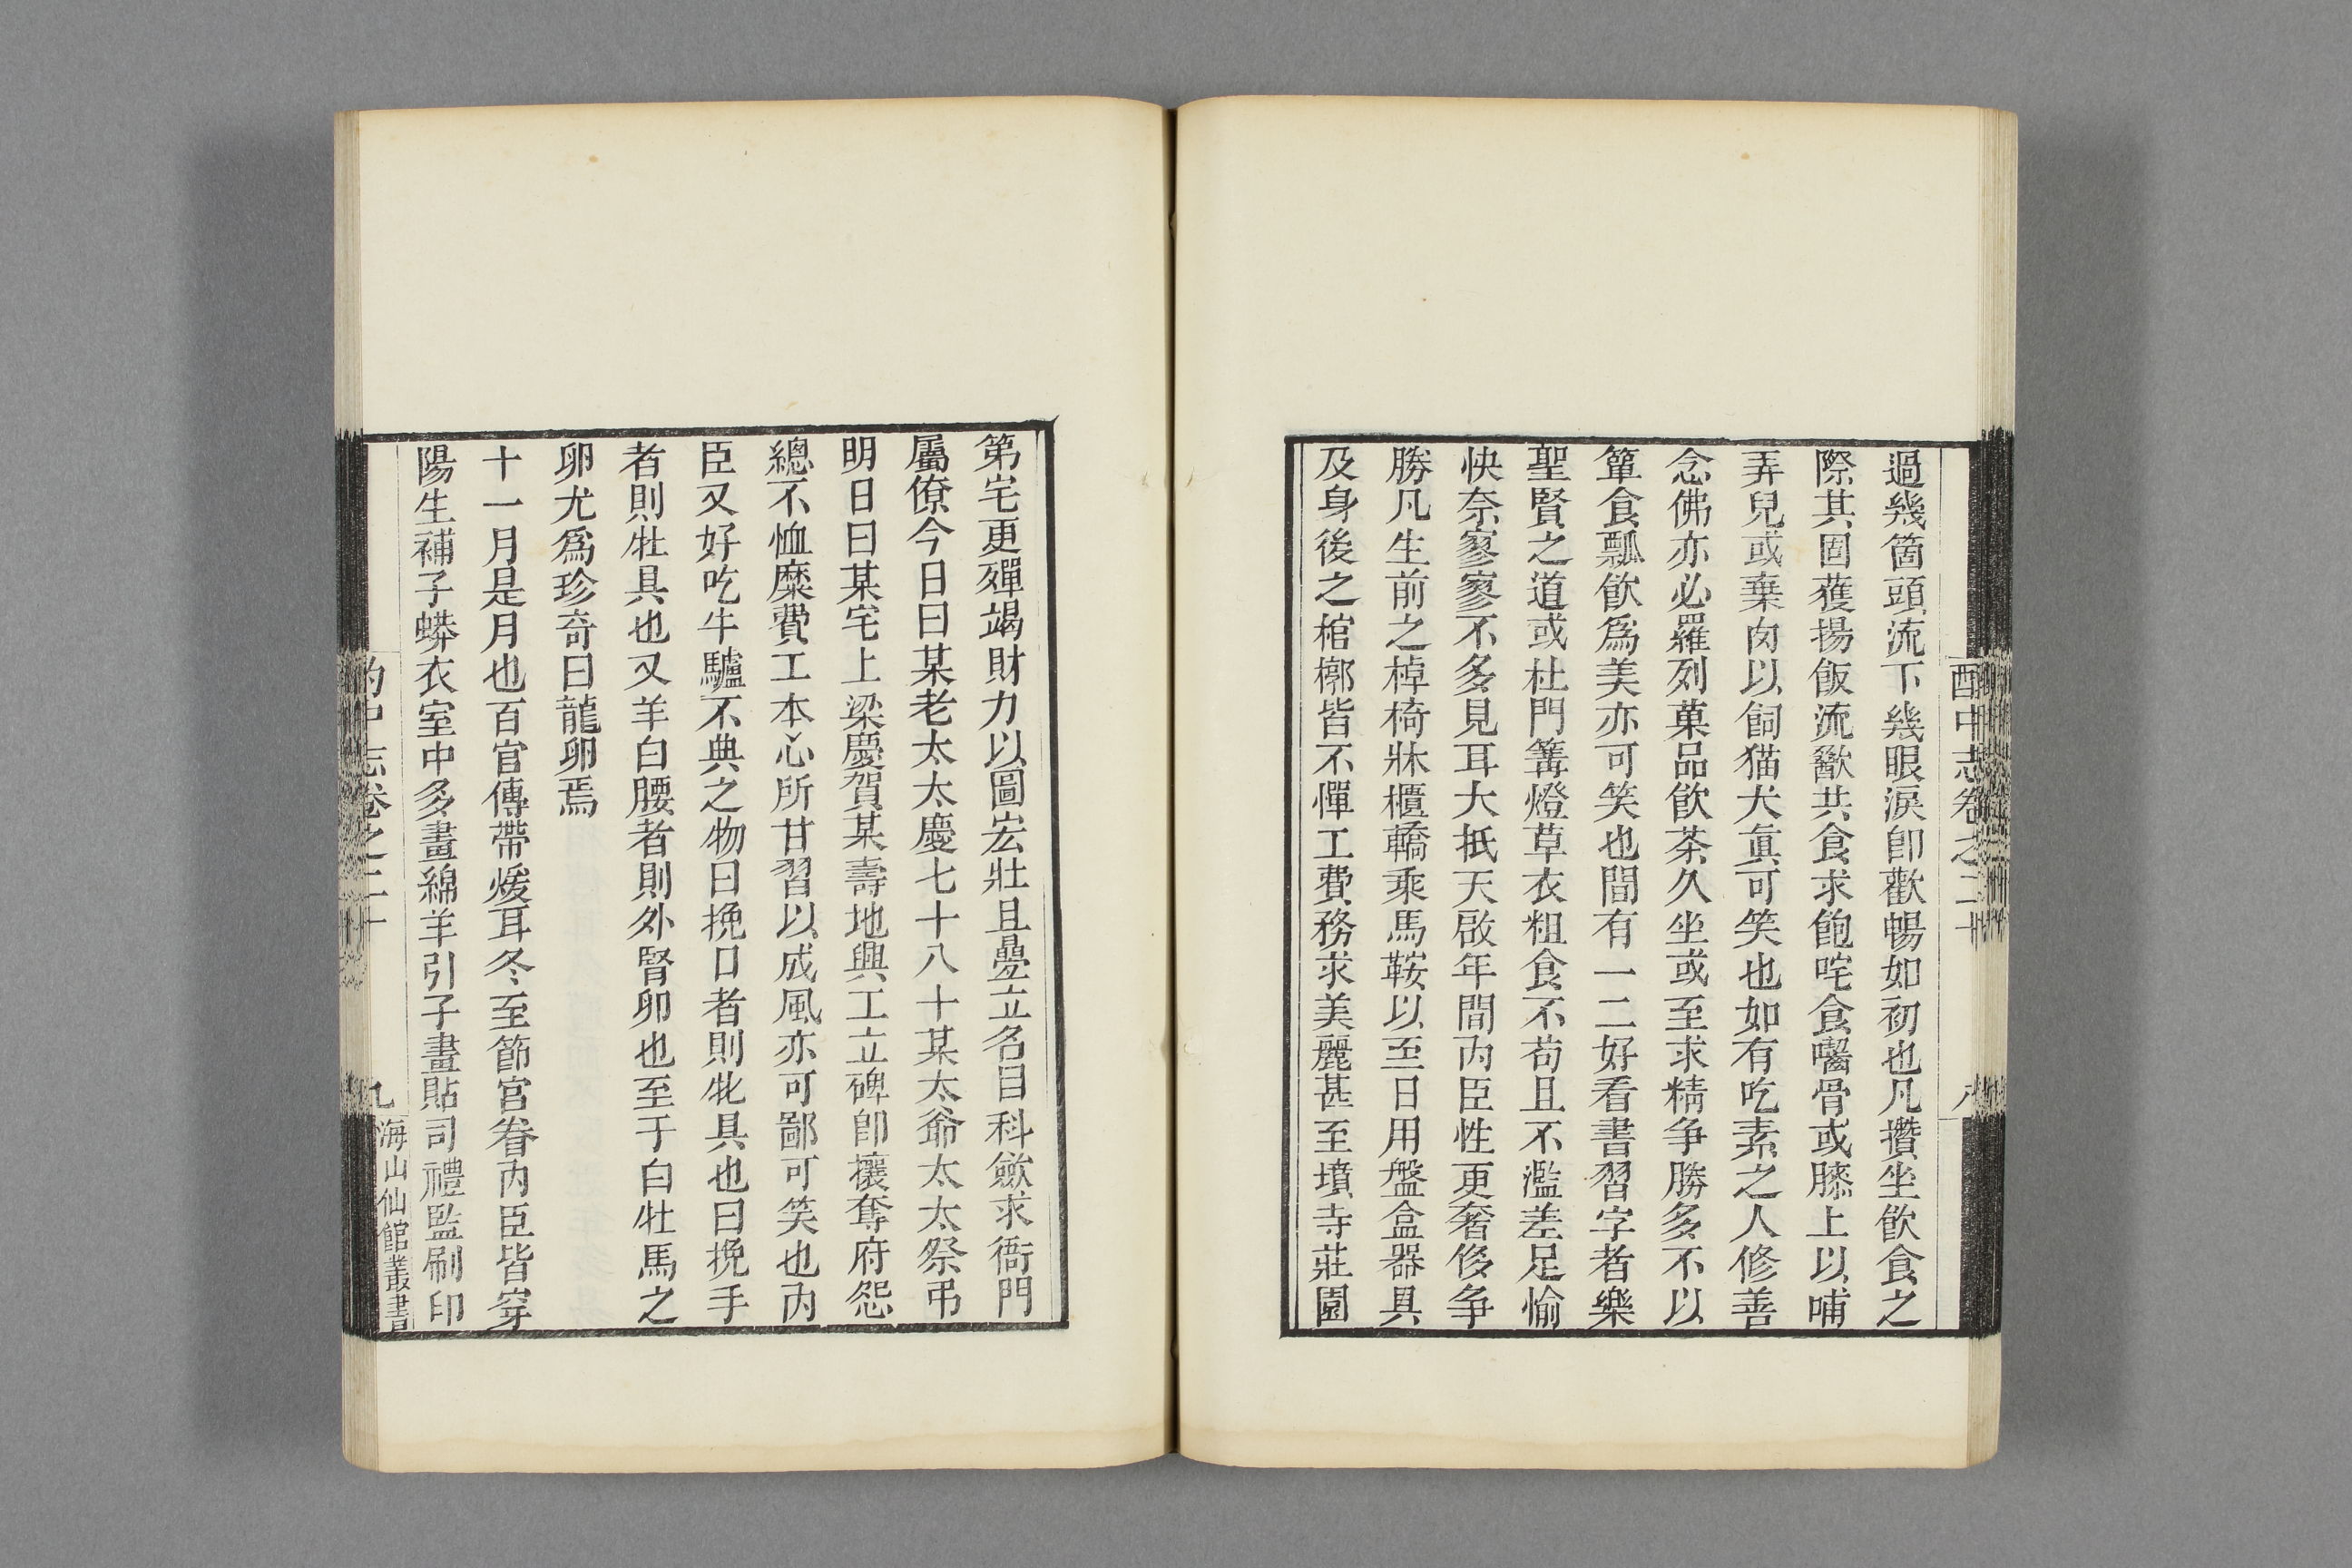 酌中志卷之二十
八
過幾箇頭流下幾眼淚卽歡暢如初也凡攢坐飲食之
際其固獲揚飯流歠共食求飽咤食囓骨或膝上以哺
弄兒或棄肉以飼猫犬眞可笑也如有吃素之人修善
念佛亦必羅列菓品飲茶久坐或至求精争勝多不以
簞食瓢飲爲美亦可笑也間有一二好看書習字者樂
聖賢之道或杜門篝燈草衣粗食不苟且不濫差足愉
快奈寥寥不多見耳大抵天啟年間内臣性更奢侈争
勝凡生前之棹椅牀櫃轎乘馬鞍以至日用盤盒器具
及身後之棺槨皆不憚工費務求美麗甚至墳寺莊園
第宅更殫竭財力以圖宏壯且疊立名目科歛求衙門
屬僚今日曰某老太太慶七十八十某太爺太太祭弔
明日曰某宅上梁慶賀某壽地興工立碑卽攘奪府怨
總不恤糜費工本心所甘習以成風亦可鄙可笑也内
臣又好吃牛驢不典之物曰挽口者則牝具也曰挽手
者則牡具也又羊白腰者則外腎卵也至于白牡馬之
卵尤爲珍奇曰龍卵焉
十一月是月也百官傳帶煖耳冬至節宮眷内臣皆穿
陽生補子蟒衣室中多畫綿羊引子畫貼司禮監刷印
酌中志卷之二十
九
海山仙館叢書